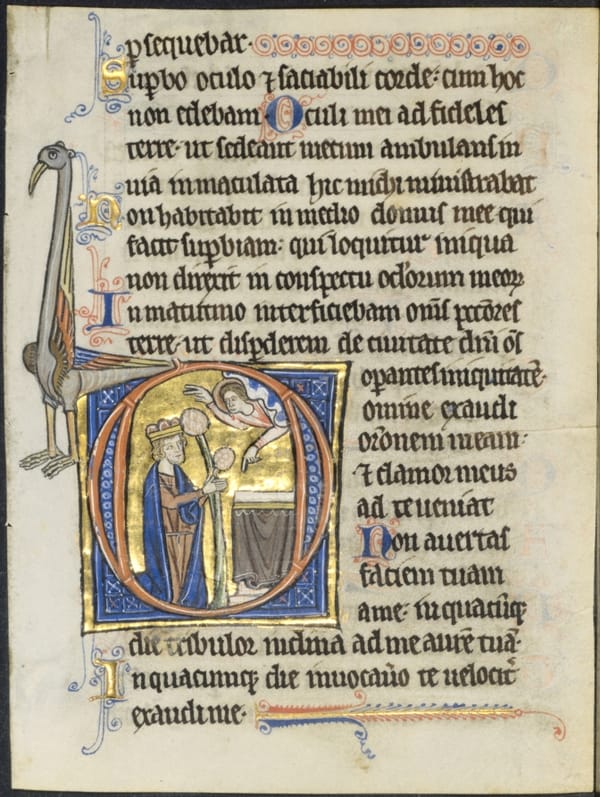 psequebar.
Supbo oculo ⁊ saciabili corde: cum hoc
non edebam. Oculi mei ad fideles
terre. ut sedeant mecum ambulans in
uia inmaculata hic michi ministrabat
Non habitabit in medio domus mee qui
facit supbiam: qui loquitur iniqua
non direxit in conspectu oclorum meoꝝ
In matutino interficiebam om̄s pctōres
terre. ut disperderem de ciuitate dn̄i om̄s
operantes iniquitatē.
Domine exaudi
orōnem meam:
⁊ clamor meus
ad te ueniat
Non auertas
faciem tuam
a me. in quacūqꝫ
die tribulor inclina ad me aurē tuā.
In quacumqꝫ die inuocauo te uelocit
exaudi me.